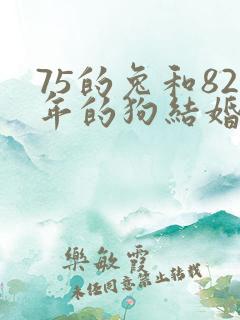 75的兔和82
年的狗結婚
樂敏霞
未经同意禁止转载